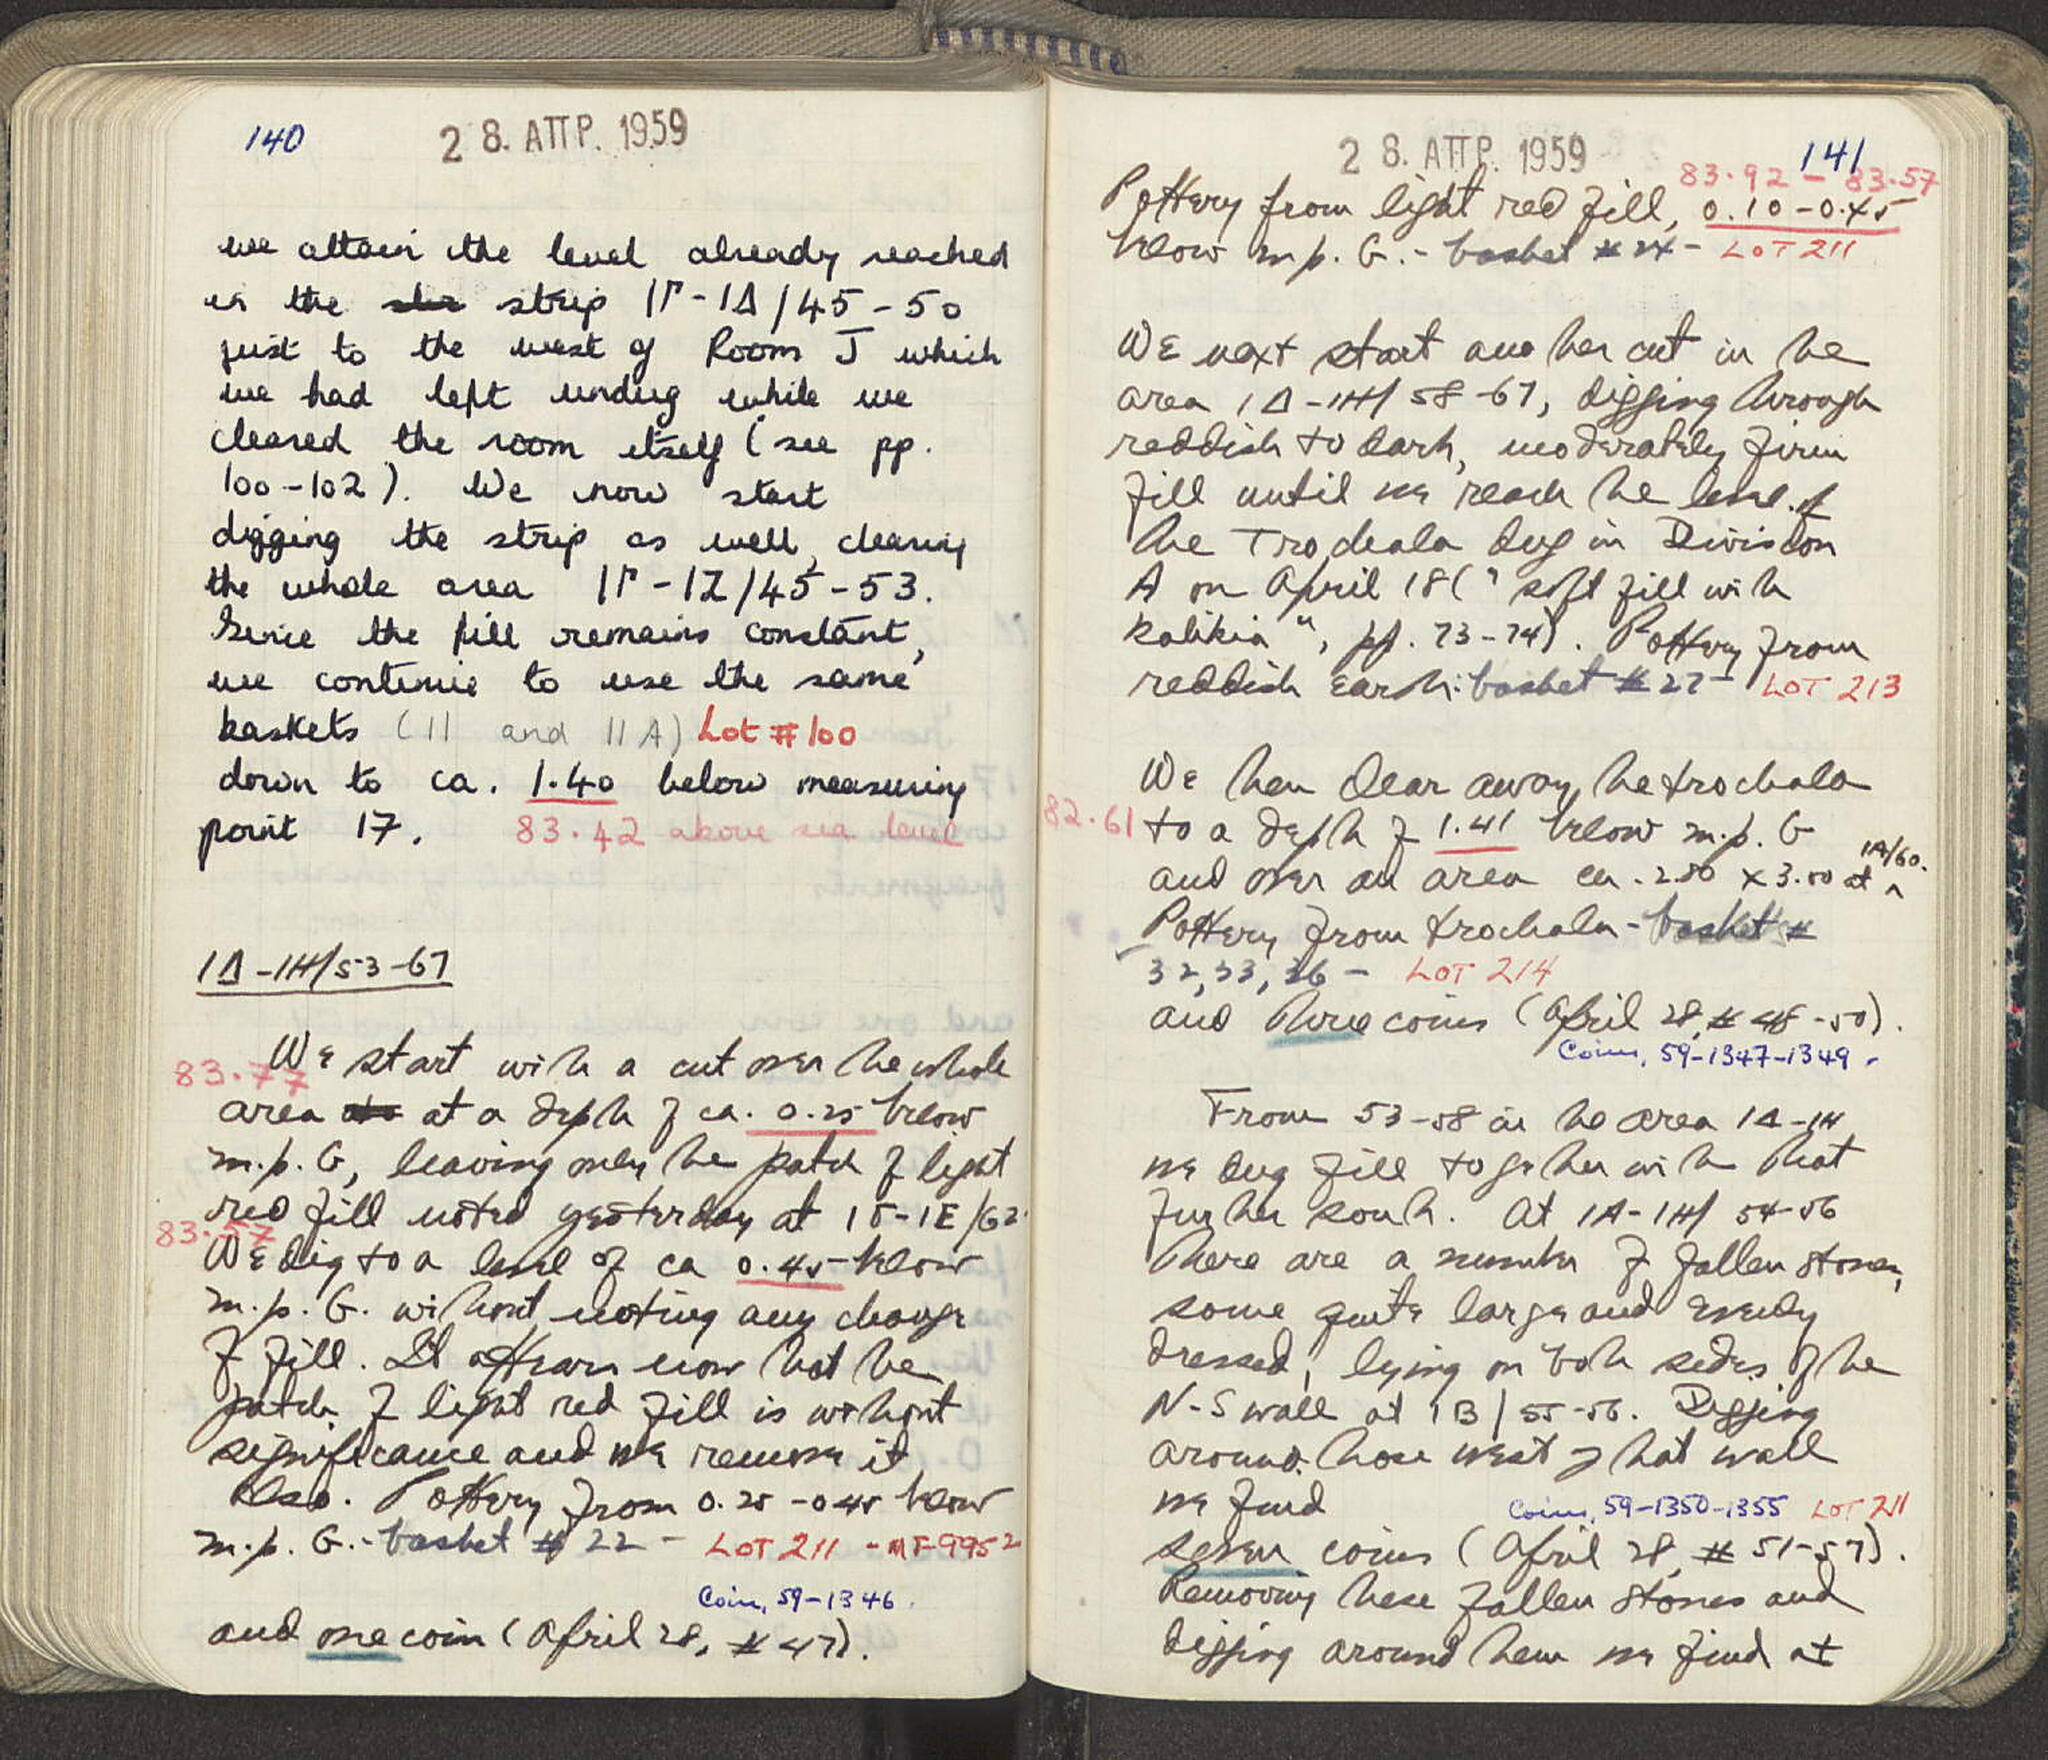 140
28. ΑΠΡ. 1959
we attain the level already reached
in the strip ΙΓ-ΙΔ/45-50
just to the west of Room J which
we had left undug while we
cleared the room itself (see pp.
100-102). We now start
digging the strip as well, clearing
the whole area ΙΓ-ΙΖ/45-53.
Since the fill remains constant,
we continue to use the same
baskets (11 and 11A) Lot #100
down to ca. 1.40 below measuring
point 17. 83.42 above sea level
ΙΔ-ΙΗ/53-67
We start with a cut over the whole
83.77
area at a depth of ca. 0.25 below
m.p. G, leaving only the patch of light
red fill noted yesterday at ΙΔ-ΙΕ/62.
83.57
We dig to a level of ca 0.45 below
m.p. G. without noting any change
of fill. It appears now that the
patch of light red fill is without
significance and we remove it
also. Pottery from 0.25-0.45 below
m.p. G.- basket # 22 - LOT 211 - MF-9952
Coin, 59-1346.
and one coin (April 28, # 47).
28. ΑΠΡ. 1959
141
83.92 - 83.57
Pottery from light red fill, 0.10-0.45
below m.p. G.- basket # 24 - LOT 211
We next start another cut in the
area ΙΔ-ΙΗ/58-67, digging through
reddish to dark, moderately firm
fill until we reach the level of
the Trochala dug in Division
A on April 18 ("soft fill with
kalikia", pp. 73-74). Pottery from
reddish earth: basket # 27 - LOT 213
We then clear away the trochala
82.61 to a depth of 1.41 below m.p. G
ΙΔ/60.
and over an area ca. 2.50 x 3.50 at
Pottery from trochala - basket #
32, 33, 36 - LOT 214
and three coins (April 28, # 48-50).
Coins, 59-1347-1349.
From 53-58 in the area ΙΔ-ΙΗ
we dug fill together with that
further south. At ΙΔ-ΙΗ/54-56
there are a number of fallen stones,
some quite large and evenly
dressed, lying on both sides of the
N-S wall at 1B/55-56. Digging
around those west of that wall
we find
Coins, 59-1350-1355 LOT 211
seven coins (April 28, # 51-57).
Removing these fallen stones and
digging around them we find at